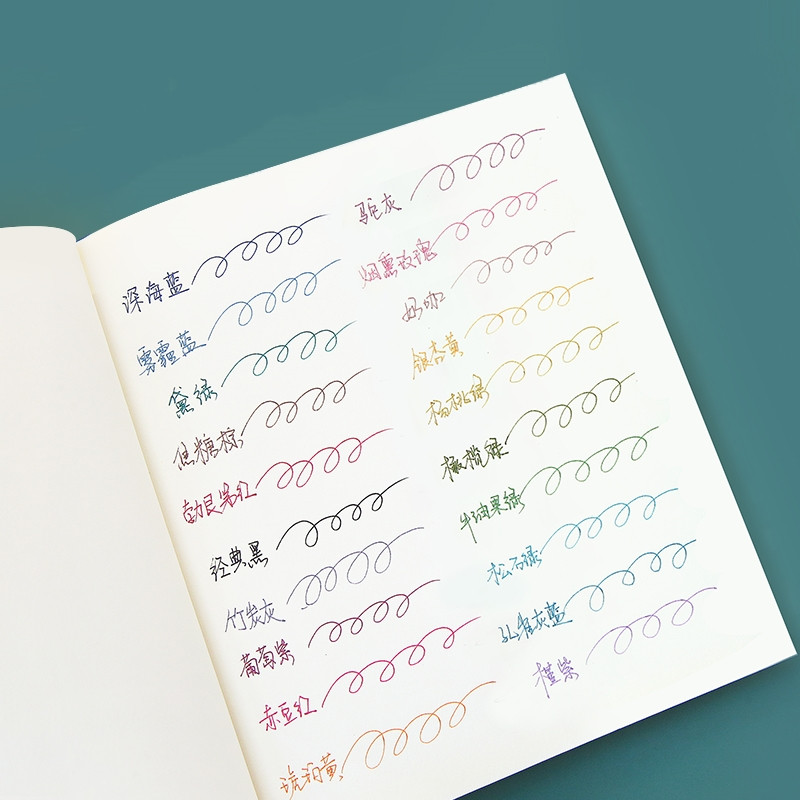 深海蓝
雾霾蓝
黛绿
焦糖棕
勃艮第红
经典黑
竹炭灰
葡萄紫
赤豆红
琥珀黄
驼灰
烟熏玫瑰
奶咖
银杏黄
杨桃绿
橄榄绿
牛油果绿
松石绿
孔雀灰蓝
槿紫